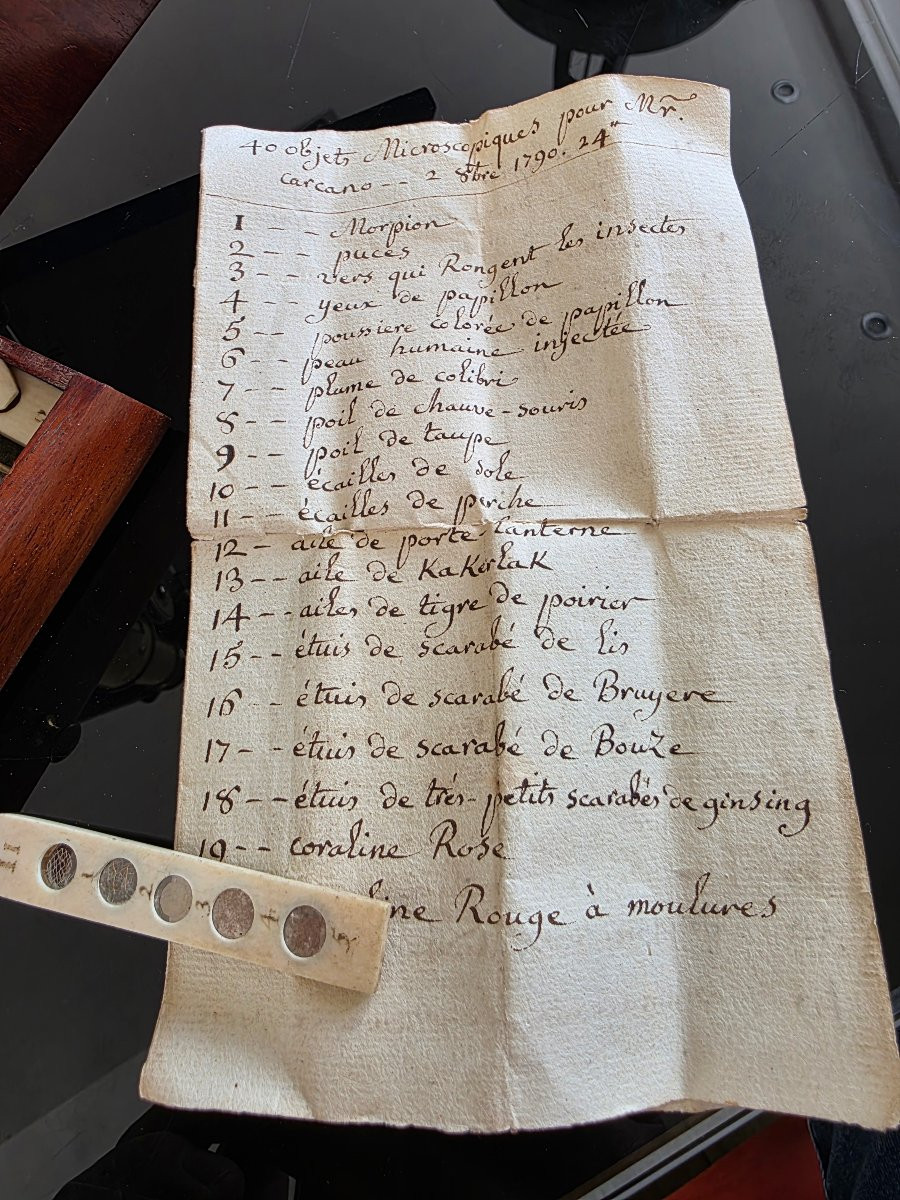 40 objets Microscopiques pour Mr.
carcano -- 2 8bre 1790. 24"
1 -- Morpion
2 -- puces
3 -- vers qui Rongent les insectes
4 -- yeux de papillon
5 -- poussiere colorée de papillon
6 -- peau humaine injectée
7 -- plume de colibri
8 -- poil de chauve-souris
9 -- poil de taupe
10 -- écailles de sole
11 -- écailles de perche
12 - aile de porte-lanterne
13 -- aile de KaKerlaK
14 -- ailes de tigre de poirier
15 -- étuis de scarabé de lis
16 -- étuis de scarabé de Bruyere
17 -- étuis de scarabé de BouZe
18 -- étuis de trés-petits scarabés de ginsing
19 -- coraline Rose
ine Rouge à moulures
III 1 2 3 4 5